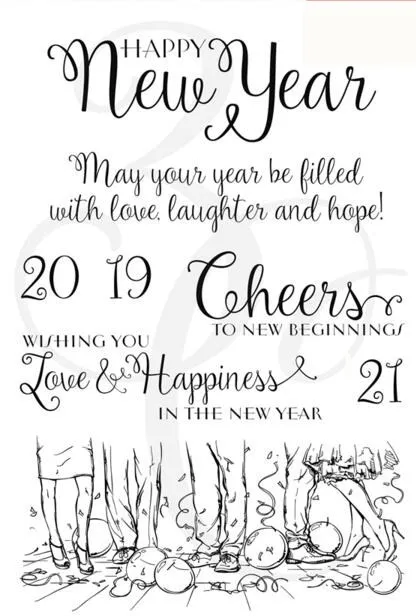 HAPPY
New Year
May your year be filled
with love, laughter and hope!
20 19
Cheers
TO NEW BEGINNINGS
WISHING YOU
Love & Happiness
IN THE NEW YEAR
21